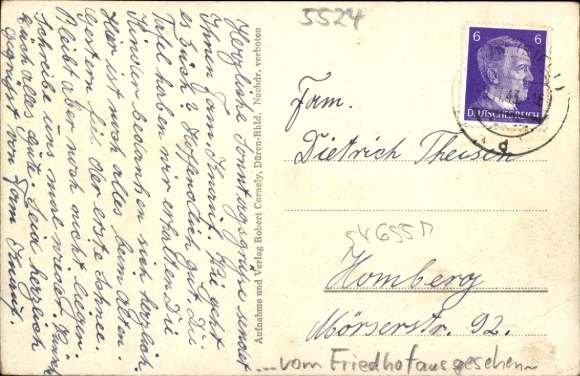 5524
6 6
DEUTSCHES REICH
Herzliche Sonntagsgrüße sendet
Ihnen Fam. Knauf. Wie geht
es Euch? Hoffendlich gut. Die
haben wir erhalten. Die
Kinder bedanken sich herzlich.
Hier ist noch alles beim Alten.
Gestern fiel der erste Schnee.
Bleibt aber noch nicht liegen.
Schreibe uns mal wieder.
Euch alles Gute. Seid herzlich
gegrüßt von Fam. Knauf.
Aufnahme und Verlag Robert Cornely, Düren-Rhld. Nachdr. verboten
Fam.
Dietrich Theisen
Homberg
Mörserstr. 92.
...vom Friedhof ausgesehen~